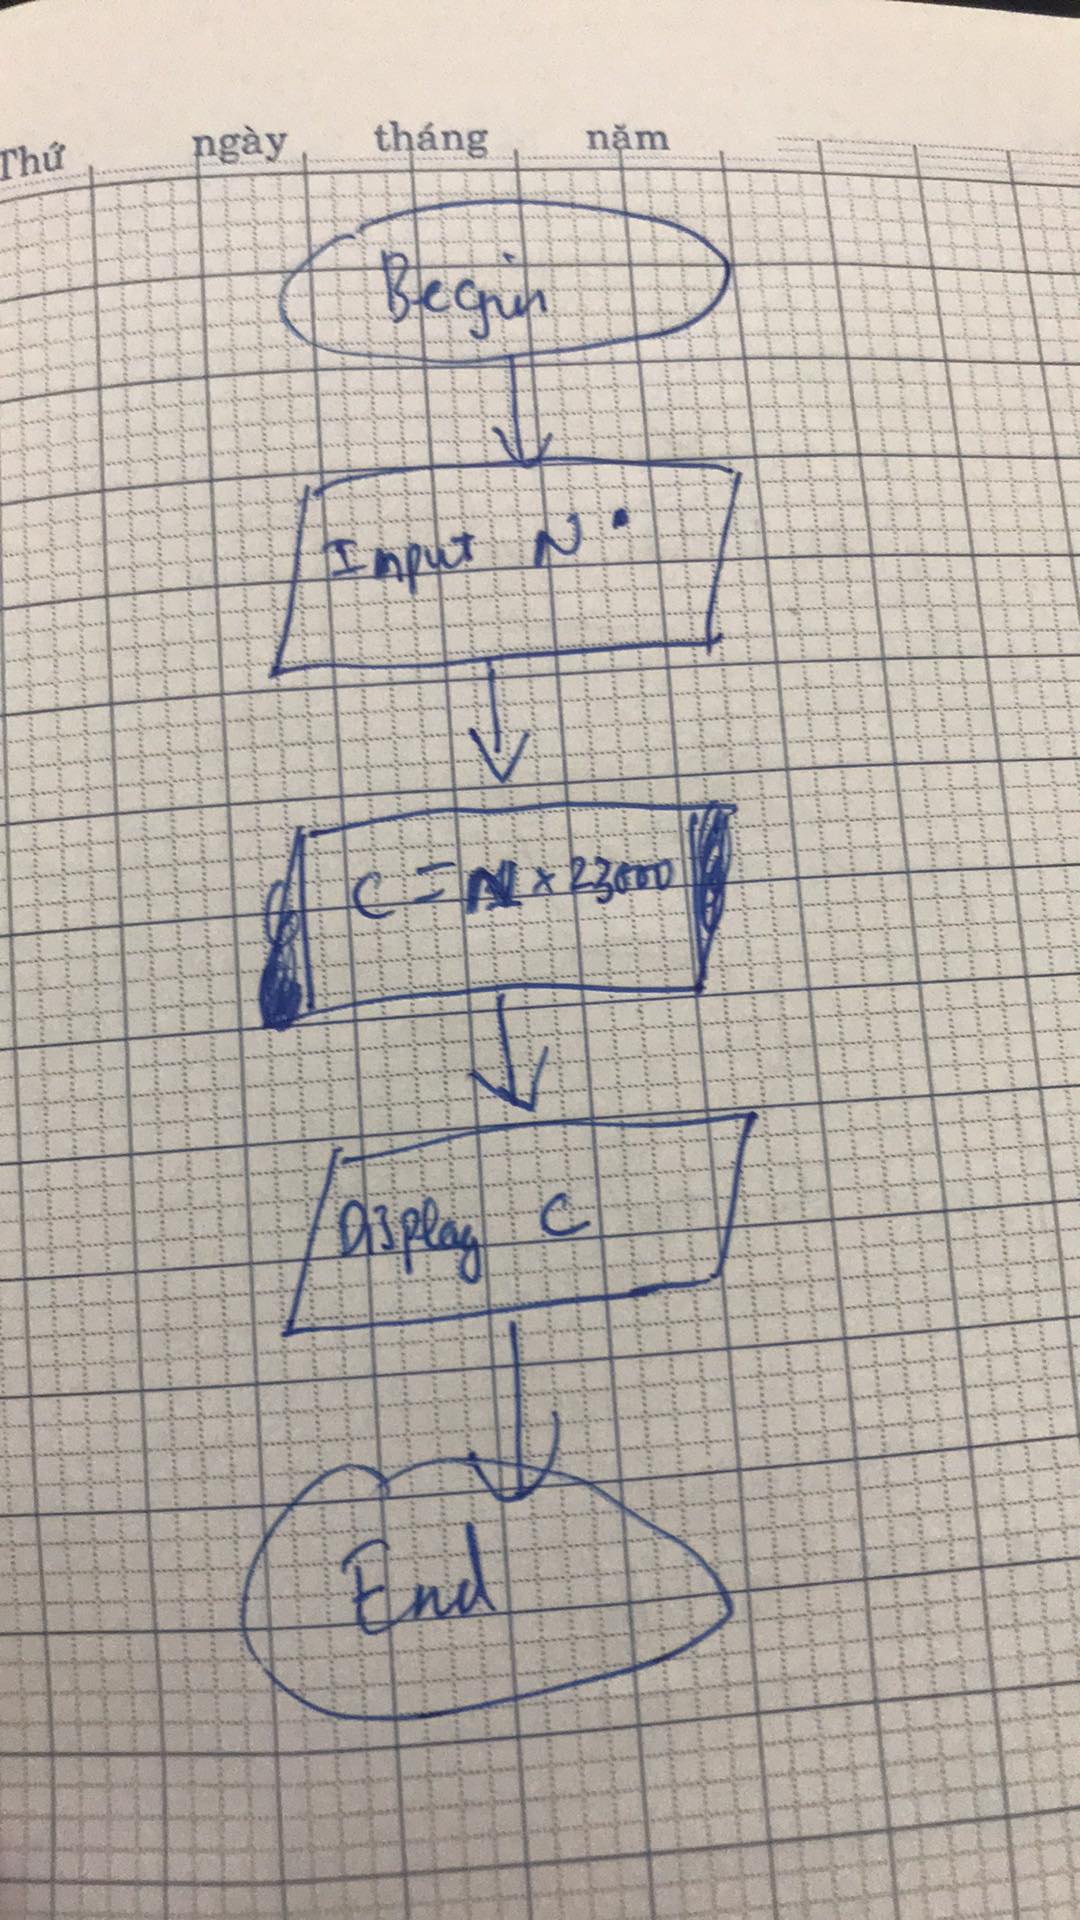 Thứ ngày tháng năm
Begin
Input N
C = N × 23000
Display C
End